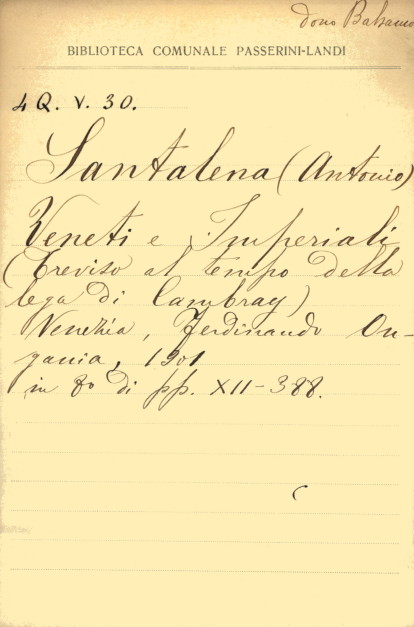 dono Balsamo
BIBLIOTECA COMUNALE PASSERINI-LANDI
4 Q. V. 30.
Santalena (Antonio)
Veneti e Imperiali
(Treviso al tempo della
lega di Cambray)
Venezia, Ferdinando On-
gania, 1901
in 8o di pp. XII-388.